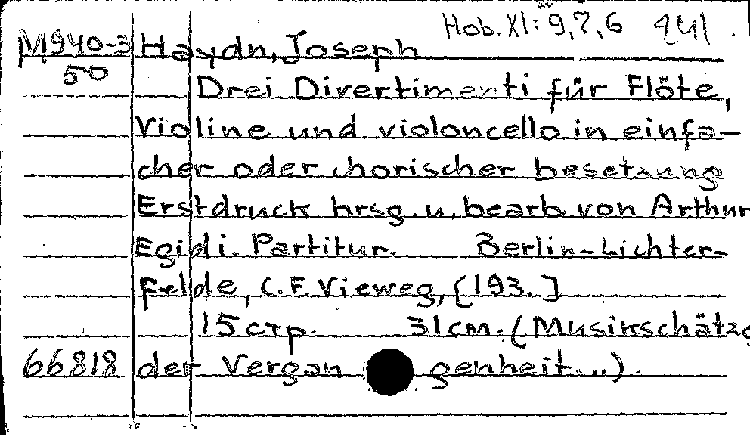 Hob. XI: 9,7,6
M940-3 Haydn, Joseph
50
Drei Divertimenti für Flöte,
Violine und violoncello in einfa-
cher oder chorischer besetzung
Erstdruck hrsg. u. bearb. von Arthur
Egidi. Partitur. Berlin-Lichter-
felde, C.F. Vieweg, [193. ]
15 стр. 31 cm. (Musikschätze
66818 der Vergangenheit...)